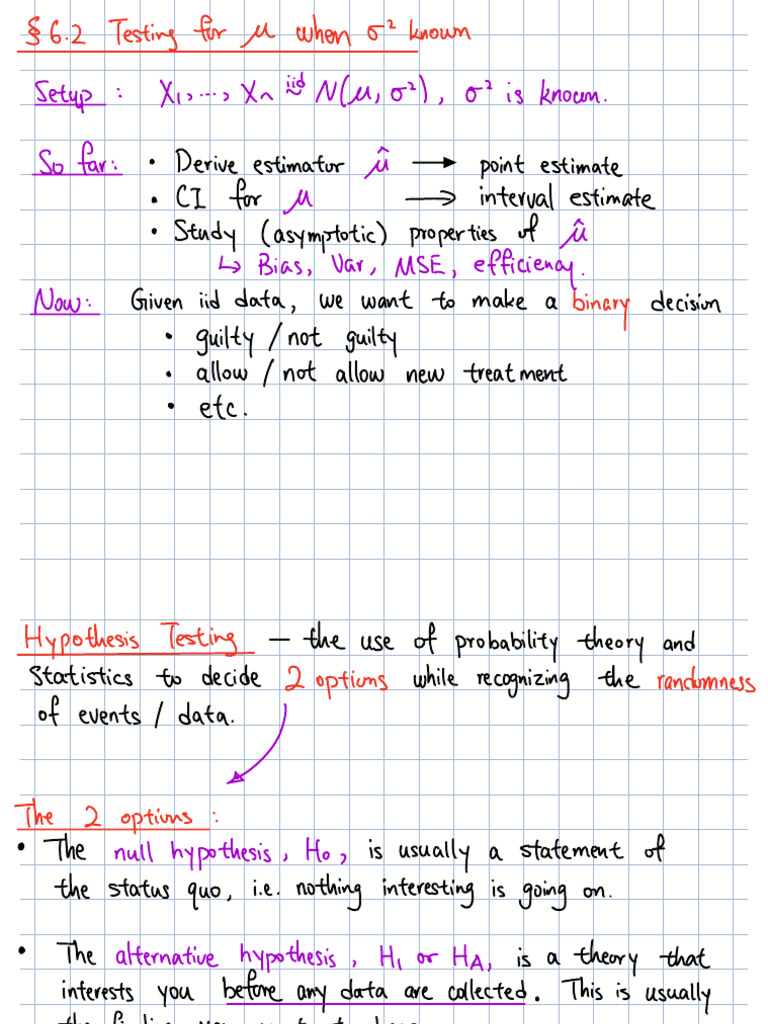 § 6.2 Testing for μ when σ² known
Setup : X₁, ..., Xₙ iid ~ N(μ, σ²), σ² is known.
So far: • Derive estimator μ̂ → point estimate
• CI for μ → interval estimate
• Study (asymptotic) properties of μ̂
↳ Bias, Var, MSE, efficiency.
Now: Given iid data, we want to make a binary decision
• guilty / not guilty
• allow / not allow new treatment
• etc.
Hypothesis Testing – the use of probability theory and
statistics to decide 2 options while recognizing the randomness
of events / data.
The 2 options :
• The null hypothesis, H₀, is usually a statement of
the status quo, i.e. nothing interesting is going on.
• The alternative hypothesis, H₁ or H_A, is a theory that
interests you before any data are collected. This is usually